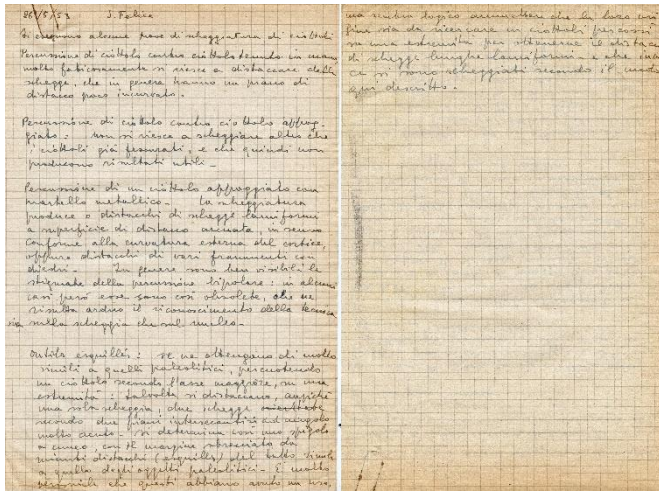 26/8/53 S. Felice
Si eseguono alcune prove di scheggiatura di ciottoli
Percussione di ciottolo contro ciottolo tenendo in mano
molto faticosamente si riesce a distaccare delle
schegge, che in genere hanno un piano di
distacco poco incurvato.
Percussione di ciottolo contro ciottolo appog-
giato. - non si riesce a scheggiare altro che
i ciottoli già fessurati, e che quindi non
producono risultati utili -
Percussione di un ciottolo appoggiato con
martello metallico. - La scheggiatura
produce o distacchi di schegge lamiformi
a superficie di distacco arcuata, in senso
conforme alla curvatura esterna del cortice,
oppure distacchi di vari frammenti con
diedri. - In genere sono ben visibili le
stigmate della percussione bipolare: in alcuni
casi però esse sono così obsolete, che ne
risulta arduo il riconoscimento della tecnica
sia sulla scheggia che sul nucleo -
Outils esquillés: se ne ottengono di molto
simili a quelli paleolitici, percuotendo
un ciottolo secondo l'asse maggiore, su una
estremità: talvolta si distaccano, anziché
una sola scheggia, due schegge
secondo due piani intersecantisi ad angolo
molto acuto - si determina così uno spigolo
a cuneo, con il margine sbrecciato da
minuti distacchi (esquillés) del tutto simile
a quello degli oggetti paleolitici - È molto
che questi abbiano avuto un uso,
ma sembra logico ammettere che la loro ori
gine sia da ricercare in ciottoli percossi
su una estremità per ottenerne il distac
di schegge lunghe lamiformi - e che inve
ce si sono scheggiati secondo il modo
qui descritto -